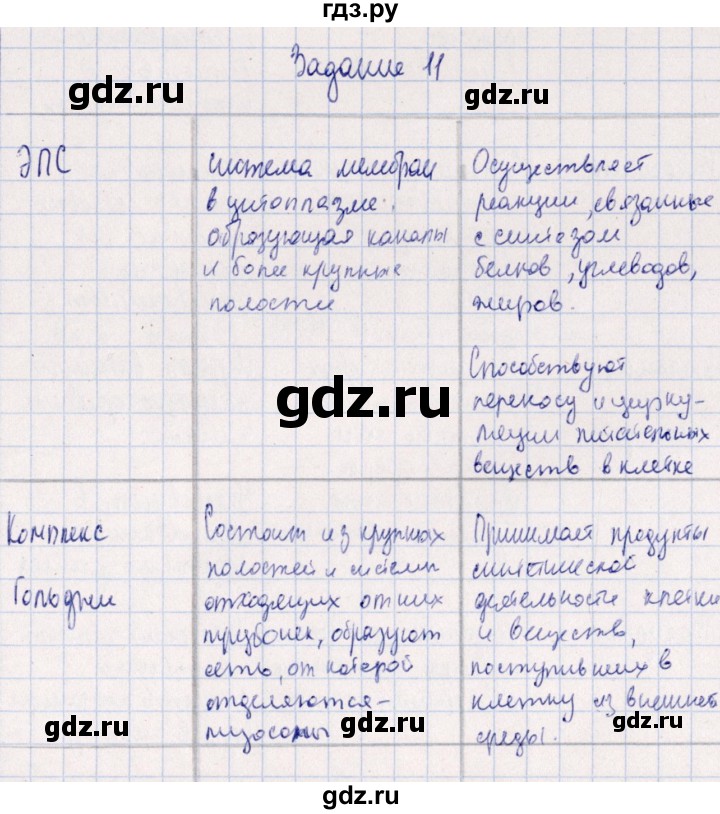 гдз.ру
Задание 11
gdz.ru
gdz.ru
ЭПС
система мембран
в цитоплазме.
образующая каналы
и более крупные
полости
Осуществляет
реакции, связанные
с синтезом
белков, углеводов,
жиров.
Способствуют
переносу и цирку-
ляции питательных
веществ в клетке
gdz.ru
Комплекс
Гольджи
Состоит из крупных
полостей и системы
отходящих от них
трубочек, образуют
сеть, от которой
отделяются-
лизосомы
Принимает продукты
синтетической
деятельности клетки
и веществ,
поступивших в
клетку из внешней
среды.
gdz.ru
gdz.ru
gdz.ru
gdz.ru